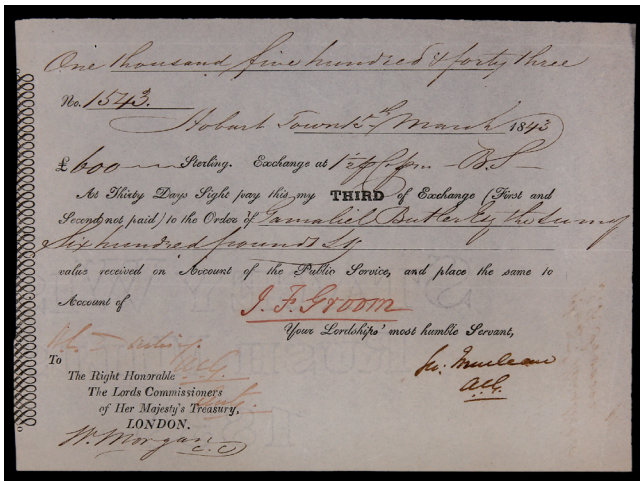 One thousand five hundred & forty three
No. 1543.
Hobart Town 5th March 1843
£600 Sterling. Exchange at 1½ p c pm B.S
At Thirty Days Sight pay this my THIRD of Exchange (First and
Second not paid) to the Order of Gamaliel Butler Esq the sum of
Six hundred pounds Sg
value received on Account of the Public Service, and place the same to
Account of J. F. Groom
Your Lordships' most humble Servant,
Geo: Maclean
ACG
To
The Right Honorable
The Lords Commissioners
of Her Majesty's Treasury,
LONDON.
W. Morgan